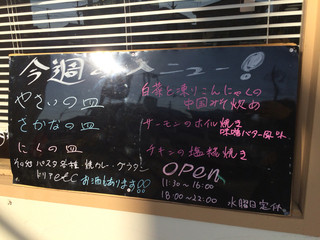 今週のメニュー!
やさいの皿
白菜と凍りこんにゃくの
中国みそ炒め
さかなの皿
サーモンのホイル焼き
味噌バター風味
にくの皿
チキンの塩糀焼き
パスタ各種・焼カレー・グラタン
ドリアetc お酒もあります!!
OPEN
11:30~16:00
18:00~22:00 水曜日定休